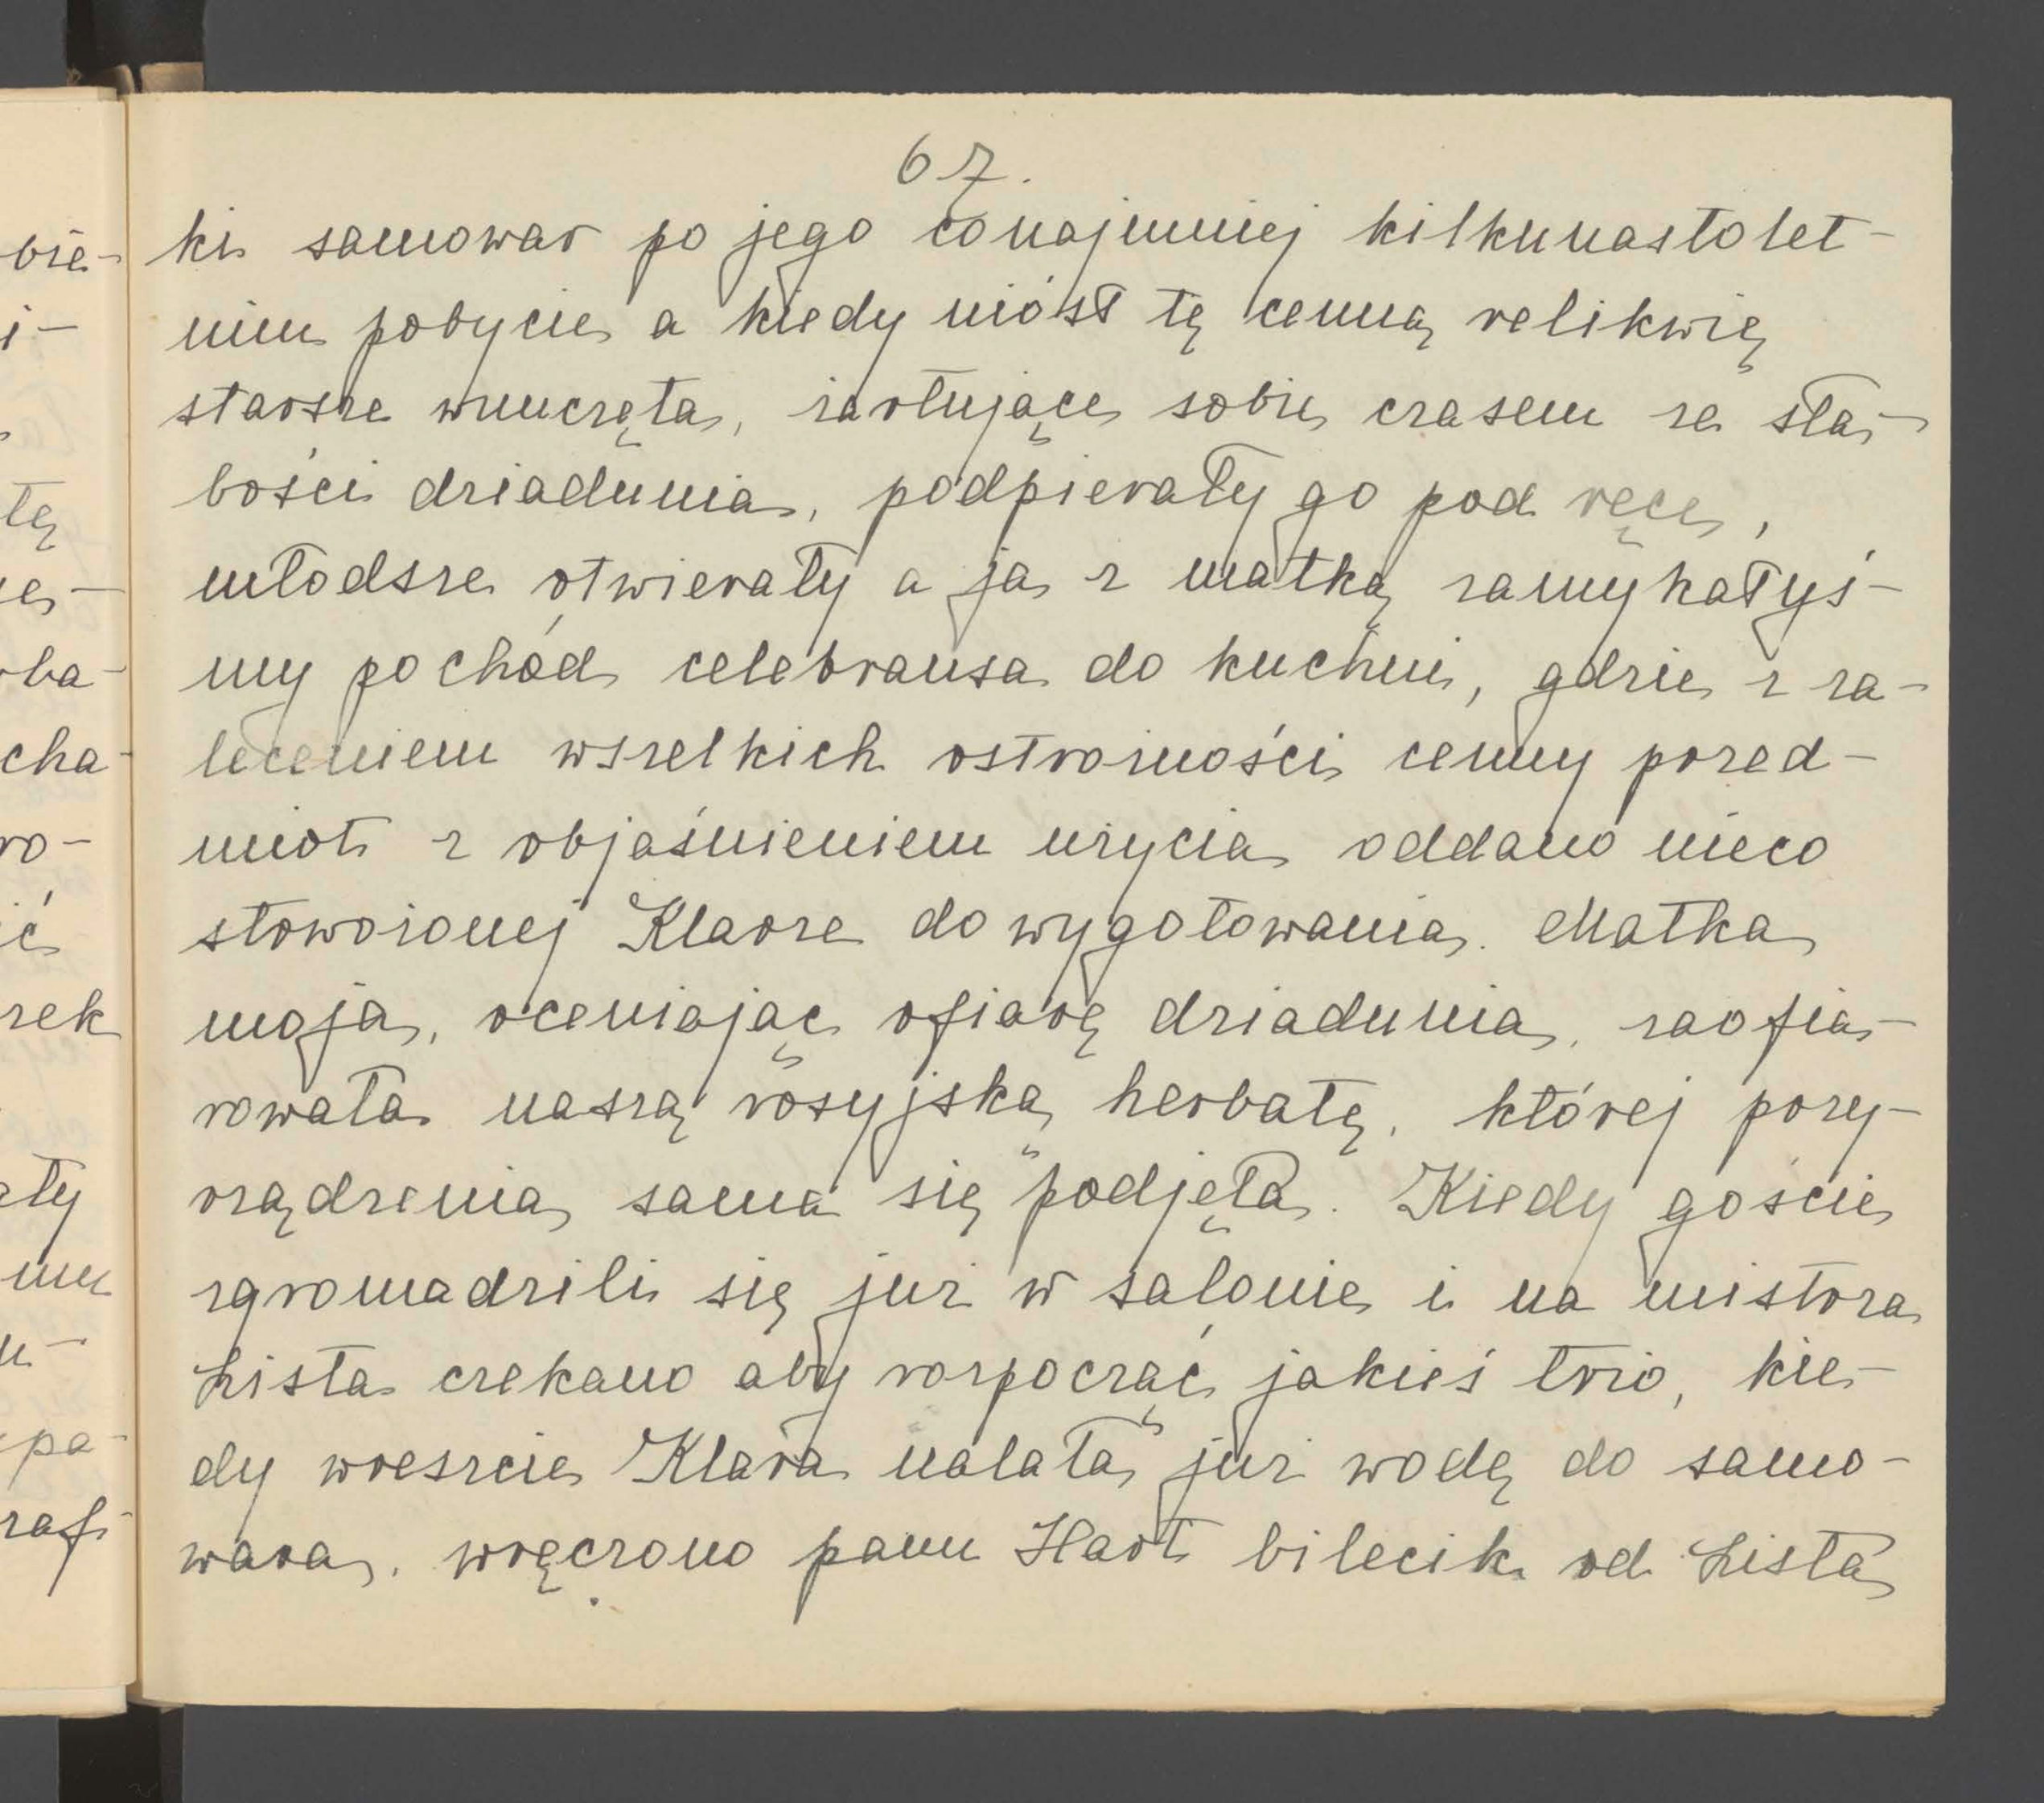 67.
ki samowar po jego conajmniej kilkunastolet-
nim pobycie a kiedy niósł tę cenną relikwię
starsze wnuczęta, żartujące sobie czasem ze sła-
bości dziadunia, podpierały go pod ręce,
młodsze otwierały a ja z matką zamykałyś-
my pochód celebransa do kuchni, gdzie z za-
leceniem wszelkich ostrożności cenny przed-
miot z objaśnieniem użycia oddano nieco
stworzonej Klarze do wygotowania. Matka
moja, oceniając ofiarę dziadunia, zaofia-
rowała naszą rosyjską herbatę, której przy-
rządzenia sama się podjęła. Kiedy goście
zgromadzili się już w salonie i na mistrza
Lista czekano aby rozpocząć jakieś trio, kie-
dy wreszcie Klara nalała już wodę do samo-
wara, wręczono panu Hart bilecik od Lista
bie-
i-
tę
cha-
ro-
ić
zek
ały
mu
pa-
raf